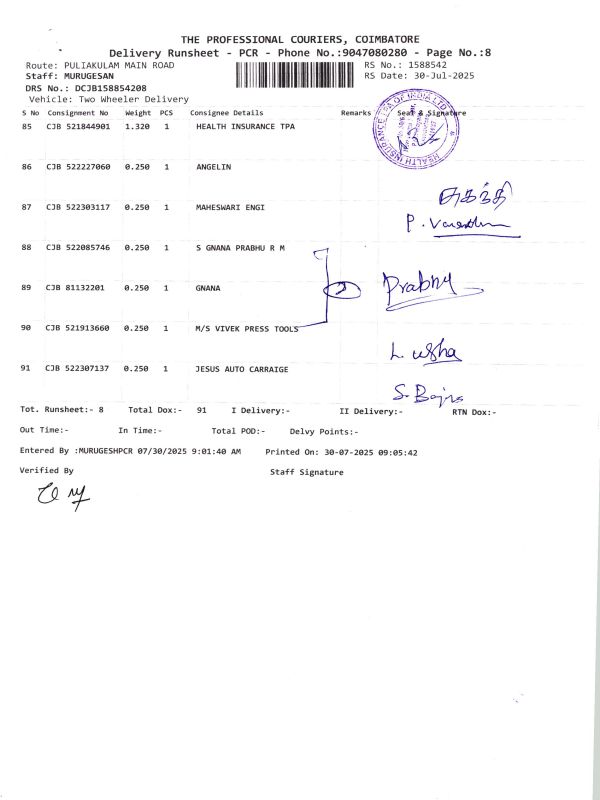 THE PROFESSIONAL COURIERS, COIMBATORE
Delivery Runsheet - PCR - Phone No.:9047080280 - Page No.:8
Route: PULIAKULAM MAIN ROAD RS No.: 1588542
Staff: MURUGESAN RS Date: 30-Jul-2025
DRS No.: DCJB158854208
Vehicle: Two Wheeler Delivery
S No Consignment No Weight PCS Consignee Details Remarks Seal & Signature
85 CJB 521844901 1.320 1 HEALTH INSURANCE TPA
HEALTH INSURANCE TPA OF INDIA LTD
86 CJB 522227060 0.250 1 ANGELIN
சுகந்தி
87 CJB 522303117 0.250 1 MAHESWARI ENGI
88 CJB 522085746 0.250 1 S GNANA PRABHU R M
89 CJB 81132201 0.250 1 GNANA
2 Prabhu
90 CJB 521913660 0.250 1 M/S VIVEK PRESS TOOLS
L. usha
91 CJB 522307137 0.250 1 JESUS AUTO CARRAIGE
Tot. Runsheet:- 8 Total Dox:- 91 I Delivery:- II Delivery:- RTN Dox:-
Out Time:- In Time:- Total POD:- Delvy Points:-
Entered By :MURUGESHPCR 07/30/2025 9:01:40 AM Printed On: 30-07-2025 09:05:42
Verified By Staff Signature